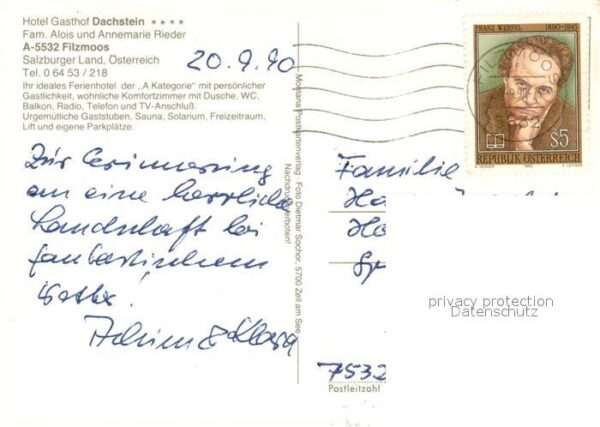 Hotel Gasthof Dachstein ★★★★
Fam. Alois und Annemarie Rieder
A-5532 Filzmoos
Salzburger Land, Österreich
Tel. 0 64 53 / 218
Ihr ideales Ferienhotel der „A Kategorie" mit persönlicher
Gastlichkeit, wohnliche Komfortzimmer mit Dusche, WC,
Balkon, Radio, Telefon und TV-Anschluß.
Urgemütliche Gaststuben, Sauna, Solarium, Freizeitraum,
Lift und eigene Parkplätze.
20.9.90
Zur Erinnerung
an eine herrliche
Landschaft bei
fantastischem
Wetter.
Achim &
Montana Postkartenverlag · Foto Dietmar Sochor, 5700 Zell am See
Nachdruck verboten!
FRANZ WERFEL 1890-1945
S5
REPUBLIK ÖSTERREICH
Familie
Ha
7532
Postleitzahl
privacy protection
Datenschutz